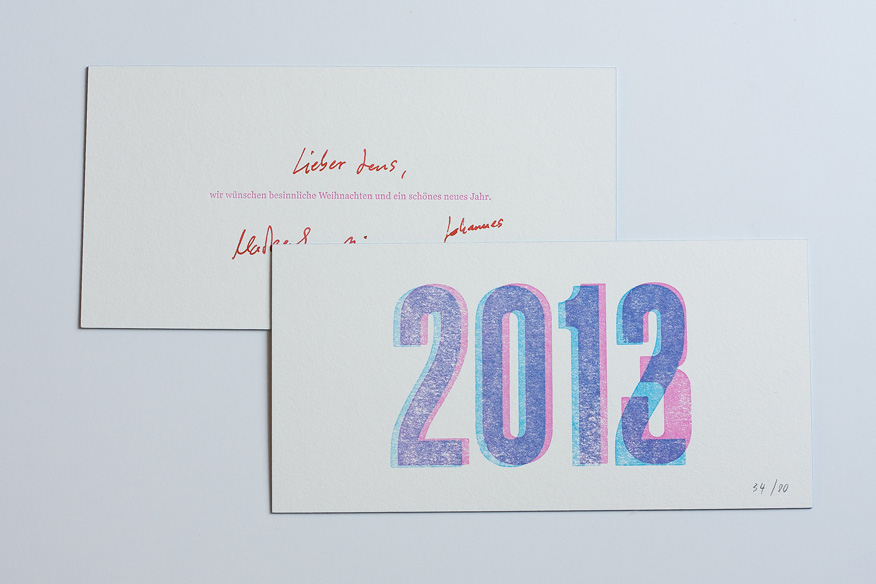 Lieber Jens,
wir wünschen besinnliche Weihnachten und ein schönes neues Jahr.
Johannes
2013
34/80